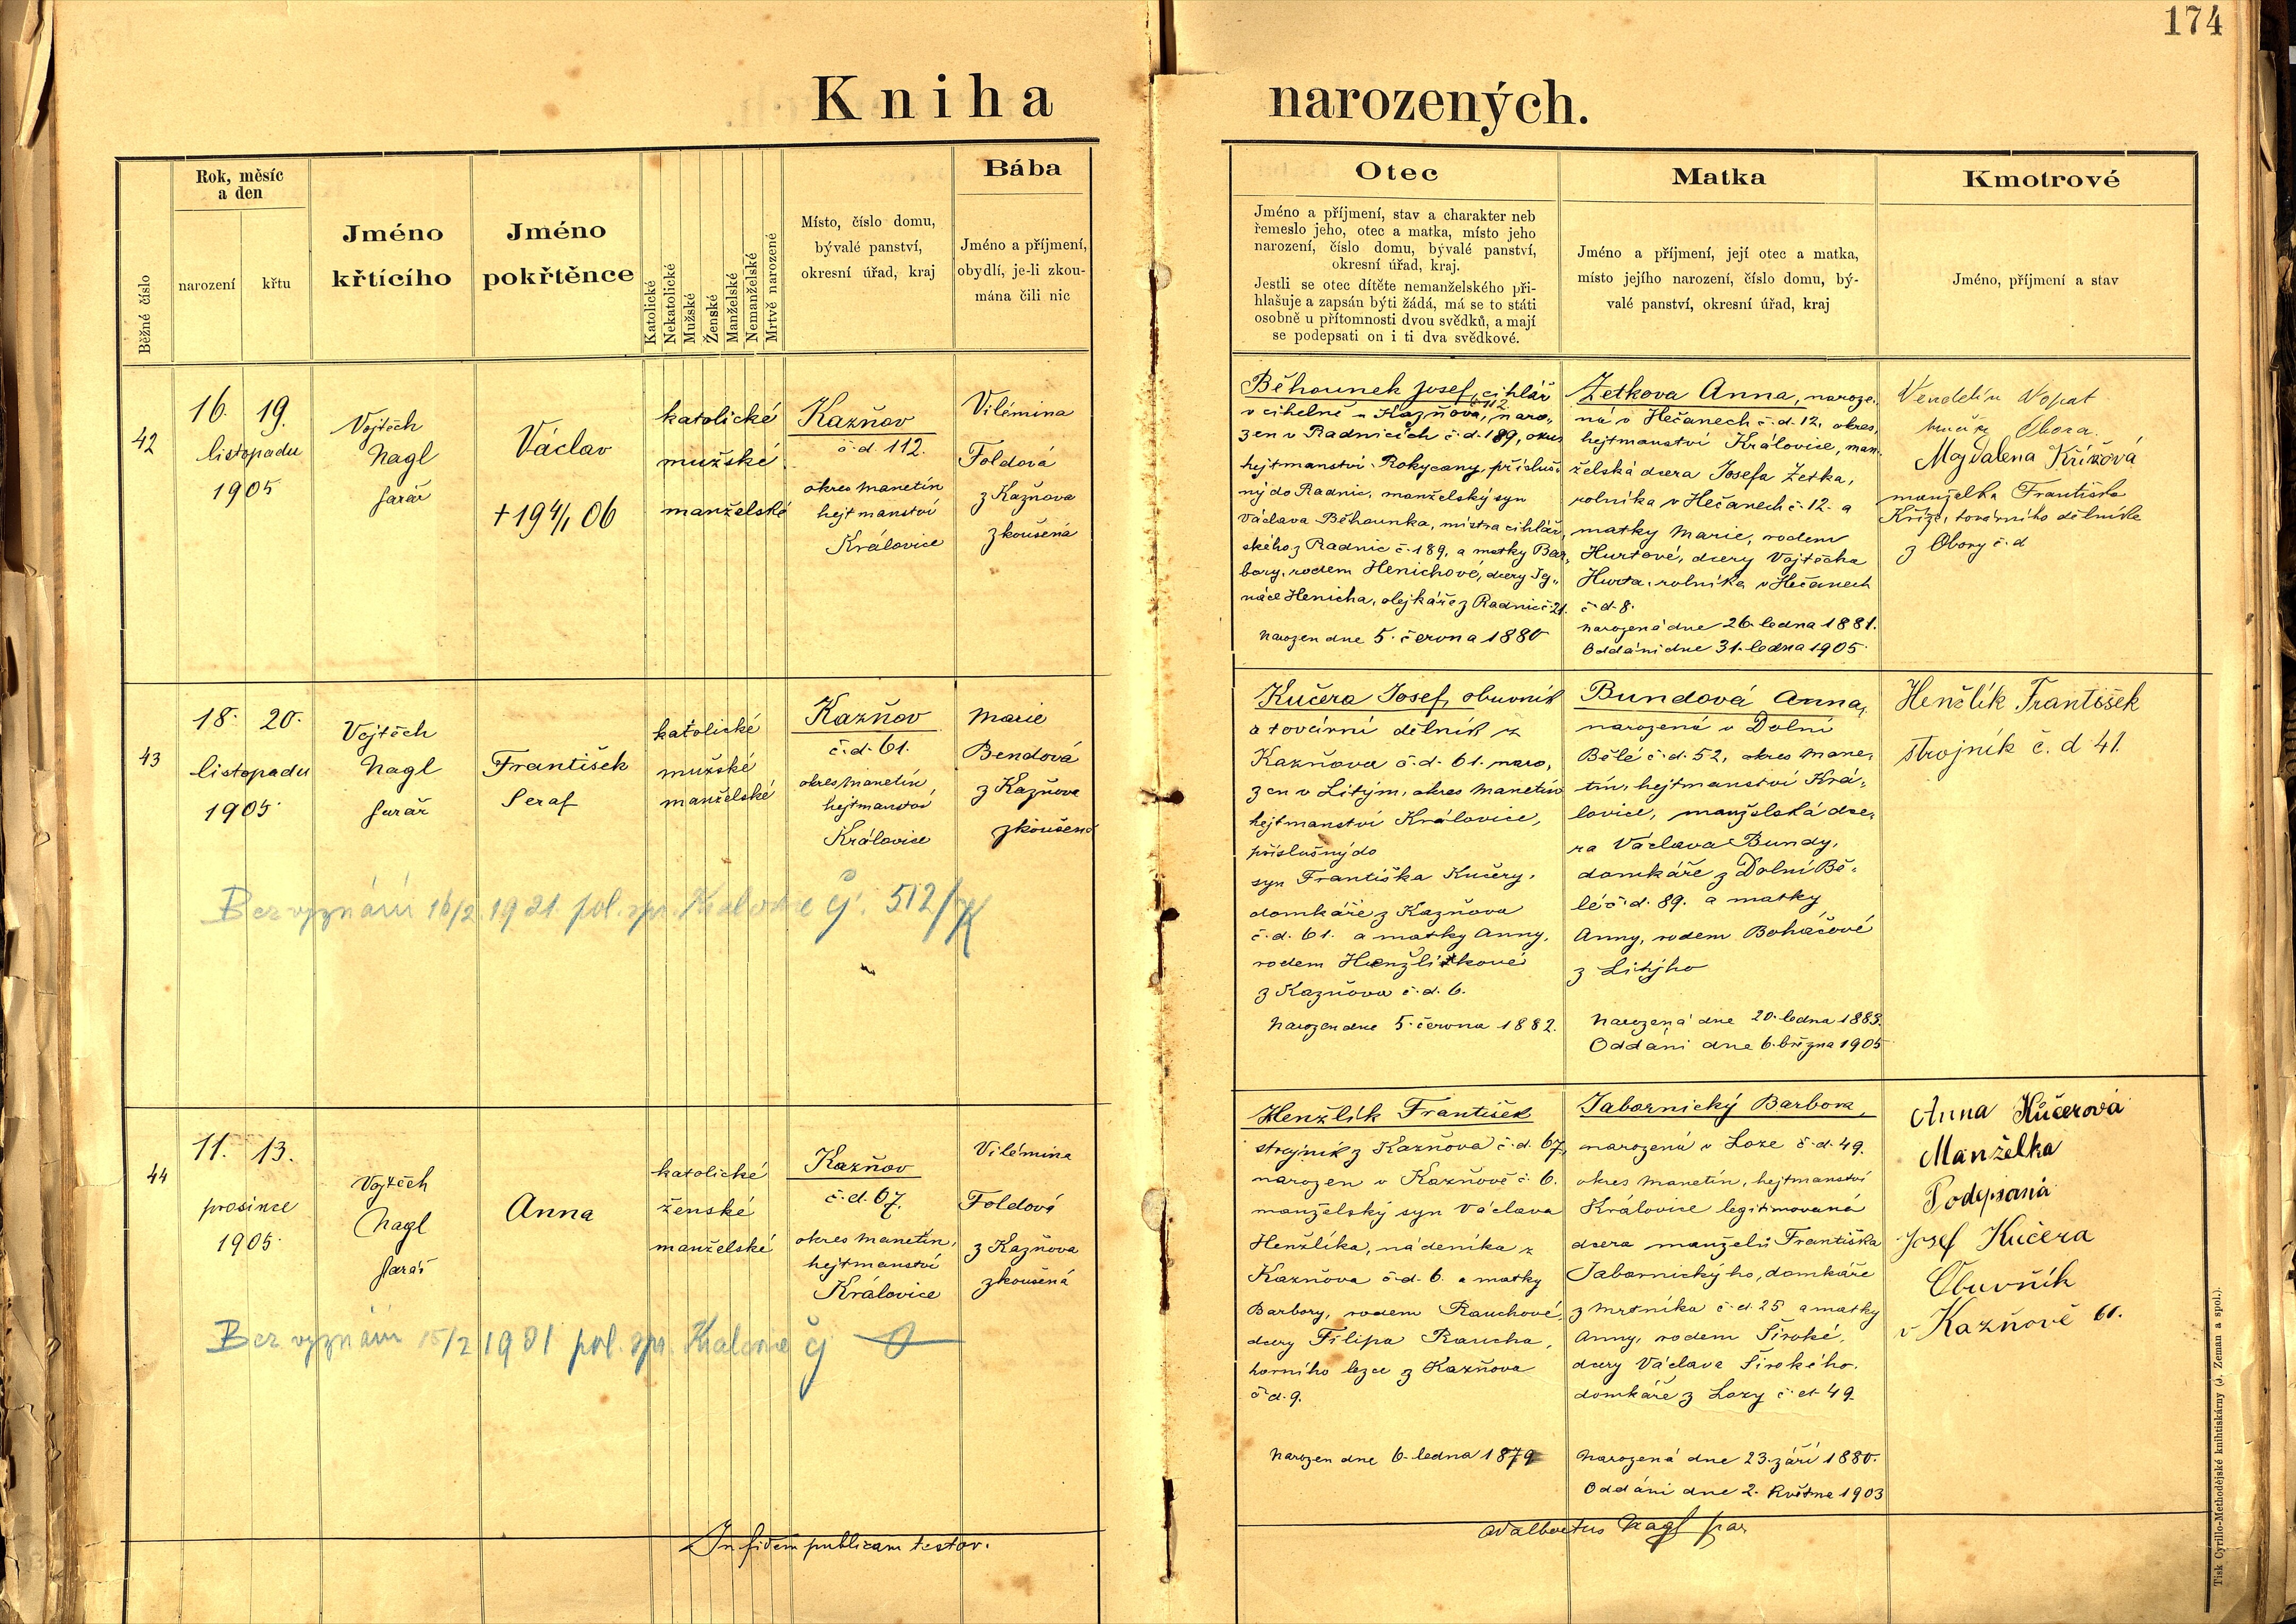 174
Kniha narozených.
Běžné číslo
Rok, měsíc
a den
narození
křtu
Jméno
křtícího
Jméno
pokřtěnce
Katolické
Nekatolické
Mužské
Ženské
Manželské
Nemanželské
Mrtvě narozené
Místo, číslo domu,
bývalé panství,
okresní úřad, kraj
Bába
Jméno a příjmení,
obydlí, je-li zkou-
mána čili nic
Otec
Jméno a příjmení, stav a charakter neb
řemeslo jeho, otec a matka, místo jeho
narození, číslo domu, bývalé panství,
okresní úřad, kraj.
Jestli se otec dítěte nemanželského při-
hlašuje a zapsán býti žádá, má se to státi
osobně u přítomnosti dvou svědků, a mají
se podepsati on i ti dva svědkové.
Matka
Jméno a příjmení, její otec a matka,
místo jejího narození, číslo domu, bý-
valé panství, okresní úřad, kraj
Kmotrové
Jméno, příjmení a stav
42
16. 19.
listopadu
1905
Vojtěch
Nagl
farář
Václav
+ 19 4/1 06
katolické
mužské
manželské
Kazňov
č. d. 112.
okres Manetín
hejtmanství
Královice
Vilémina
Foldová
z Kazňova
zkoušená
Běhounek Josef, cihlář
v cihelně u Kazňova, 112, naro„
zen v Radnicích č. d. 189, okres
hejtmanství Rokycany, přísluš„
ný do Radnic, manželský syn
Václava Běhounka, mistra cihlář„
ského z Radnic č. 189, a matky Bar„
bory, rodem Henichové, dcery Ig„
náce Henicha, olejkáře z Radnic č. 21.
Narozen dne 5. června 1880
Zetkova Anna, naroze„
ná v Hečanech č. d. 12, okres,
hejtmanství Královice, man„
želská dcera Josefa Zetka,
rolníka v Hečanech č. 12. a
matky Marie, rodem
Hurtové, dcery Vojtěcha
Hurta, rolníka v Hečanech
č. d. 8.
Narozená dne 26. ledna 1881.
Oddáni dne 31. ledna 1905.
Vendelín Vopat
Obora.
Magdalena Křížová
manželka Františka
Kříže, továrního dělníka
z Obory č. d
43
18. 20.
listopadu
1905.
Vojtěch
Nagl
farář
František
Seraf
katolické
mužské
manželské
Kazňov
č. d. 61.
okres Manetín
hejtmanství
Královice
Marie
Bendová
z Kazňova
zkoušená
Bez vyznání 16/2. 1921. pol. spr. Kralovice čj. 512/
Kučera Josef, obuvník
a tovární dělník z
Kazňova č. d. 61. naro„
zen v Litým, okres Manetín
hejtmanství Královice,
příslušný do
syn Františka Kučery,
domkáře z Kazňova
č. d. 61. a matky Anny,
rodem Henžlíkové
z Kazňova č. d. 6.
Narozen dne 5. června 1882.
Bundová Anna,
narozená v Dolní
Bělé č. d. 52, okres Mane„
tín, hejtmanství Krá„
lovice, manželská dce„
ra Václava Bundy,
domkáře z Dolní Bě„
lé č. d. 89. a matky
Anny, rodem Boháčové
z Litýho
Narozená dne 20. ledna 1883.
Oddáni dne 6. března 1905
Henžlík František
strojník č. d 41.
44
11. 13.
prosince
1905.
Vojtěch
Nagl
farář
Anna
katolické
ženské
manželské
Kazňov
č. d. 67.
okres Manetín,
hejtmanství
Královice
Vilémina
Foldová
z Kazňova
zkoušená
Bez vyznání 15/2 1921 pol. spr. Kralovice čj
Henžlík František
strojník z Kazňova č. d. 67,
narozen v Kazňově č. 6.
manželský syn Václava
Henžlíka, nádeníka z
Kazňova č. d. 6. a matky
Barbory, rodem Rauchové,
dcery Filipa Raucha,
horního lezce z Kazňova
č. d. 9.
Narozen dne 6. ledna 1879
Tabornický Barbora,
narozená v Loze č. d. 49.
okres Manetín, hejtmanství
Královice legitimovaná
dcera manželů Františka
Tabornickýho, domkáře
z Mrtníka č. d. 25 a matky
Anny, rodem Široké,
dcery Václava Širokého.
domkáře z Lozy č. d. 49.
Narozená dne 23. září 1880.
Oddáni dne 2. Května 1903
Anna Kůčerová
Manželka
Podepsaná
Josef Kučera
Obuvňík
v Kazňově 61.
In fidem publicam testor.
Adalbertus Nagl par
Tisk Cyrillo-Methodějské knihtiskárny (J. Zeman a spol.).